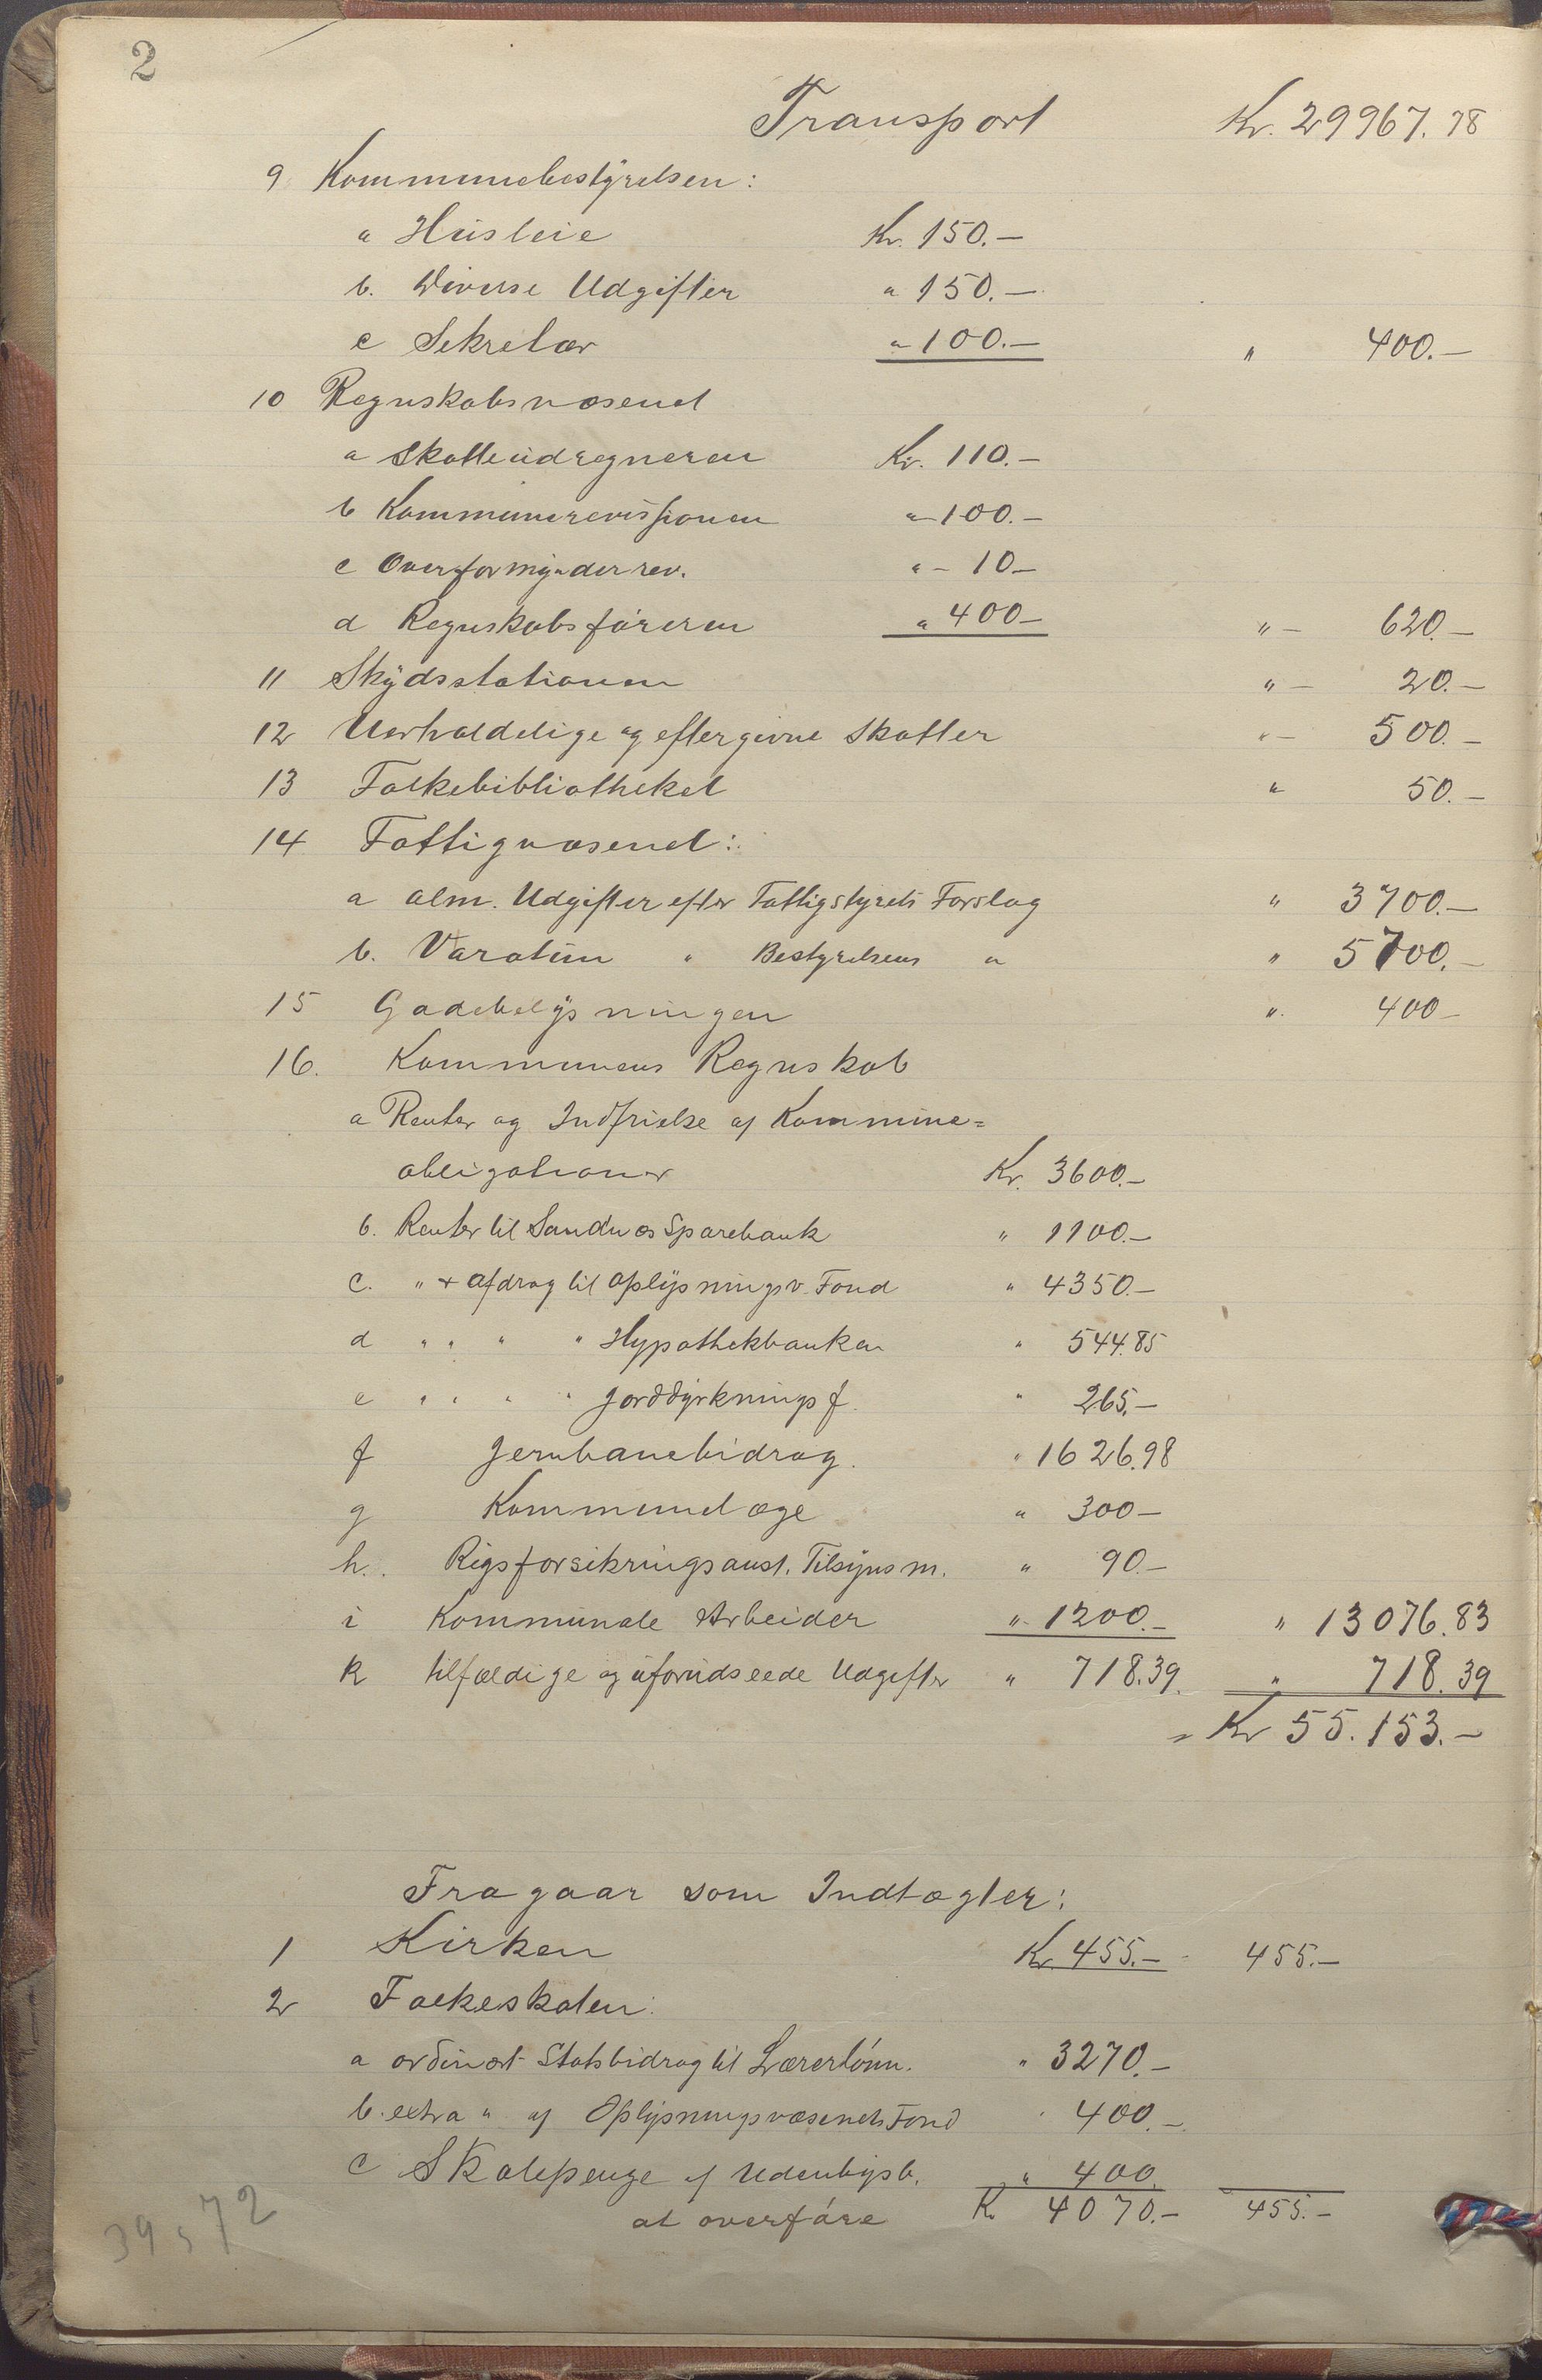 2
Transport Kr. 29967.78
9 Kommunebestyrelsen:
a Husleie Kr. 150.—
b. Diverse Udgifter " 150.—
c Sekretær " 100.— " 400.—
10 Regnskabsvæsenet
a Skatteudregneren Kr. 110.—
b Kommunerevisjonen " 100.—
c Overformynderrev. " – 10 –
d Regnskabsføreren " 400 – " – 620.—
11 Skydsstationen " – 20.—
12 Uerholdelige og eftergivne Skatter " – 500.—
13 Folkebibliotheket " 50.—
14 Fattigvæsenet:
a Alm. Udgifter efter Fattigstyrets Forslag " 3700.—
b. Varatun " Bestyrelsens " " 5700.—
15 Gadebelysningen " 400 –
16. Kommunens Regnskab
a Renter og Indfrielse af Kommune=
obligationer Kr. 3600.—
b. Renter til Sandnæs Sparebank " 1100.—
c. " + Afdrag til Oplysningsv. Fond " 4350.—
d " " " " Hypothekbanken " 544.85
e " " " " Jorddyrkningsf. " 265.—
f Jernbanebidrag. " 1626.98
g Kommunelæge " 300 –
h. Rigsforsikringsanst. Tilsynsm. " 90.—
i Kommunale Arbeider " 1200.— " 13076.83
k tilfældige og uforudseede Udgifter " 718.39. " 718.39
Kr 55.153.—
Fragaar som Indtægter:
1 Kirken Kr. 455.— 455.—
2 Folkeskolen:
a ordinært Statsbidrag til Lærerlønn. " 3270.—
b. extra " af Oplysningsvæsenets Fond " 400.—
c Skolepenge af Udenbysb. " 400.
at overføre Kr 4070.— 455.—
39 5 72